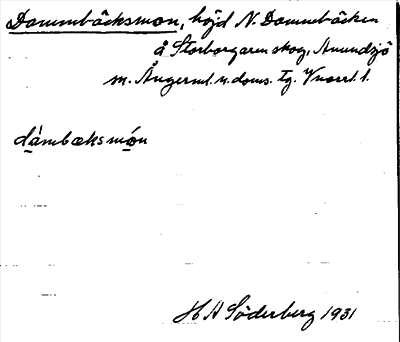 Dammbäcksmon, höjd N. Dammbäcken
å Storborgarens skog, Anundsjö
m. Ångerml. n. doms. tg. Vnorrl. l.
dàmbæksmón
H A Söderberg 1931